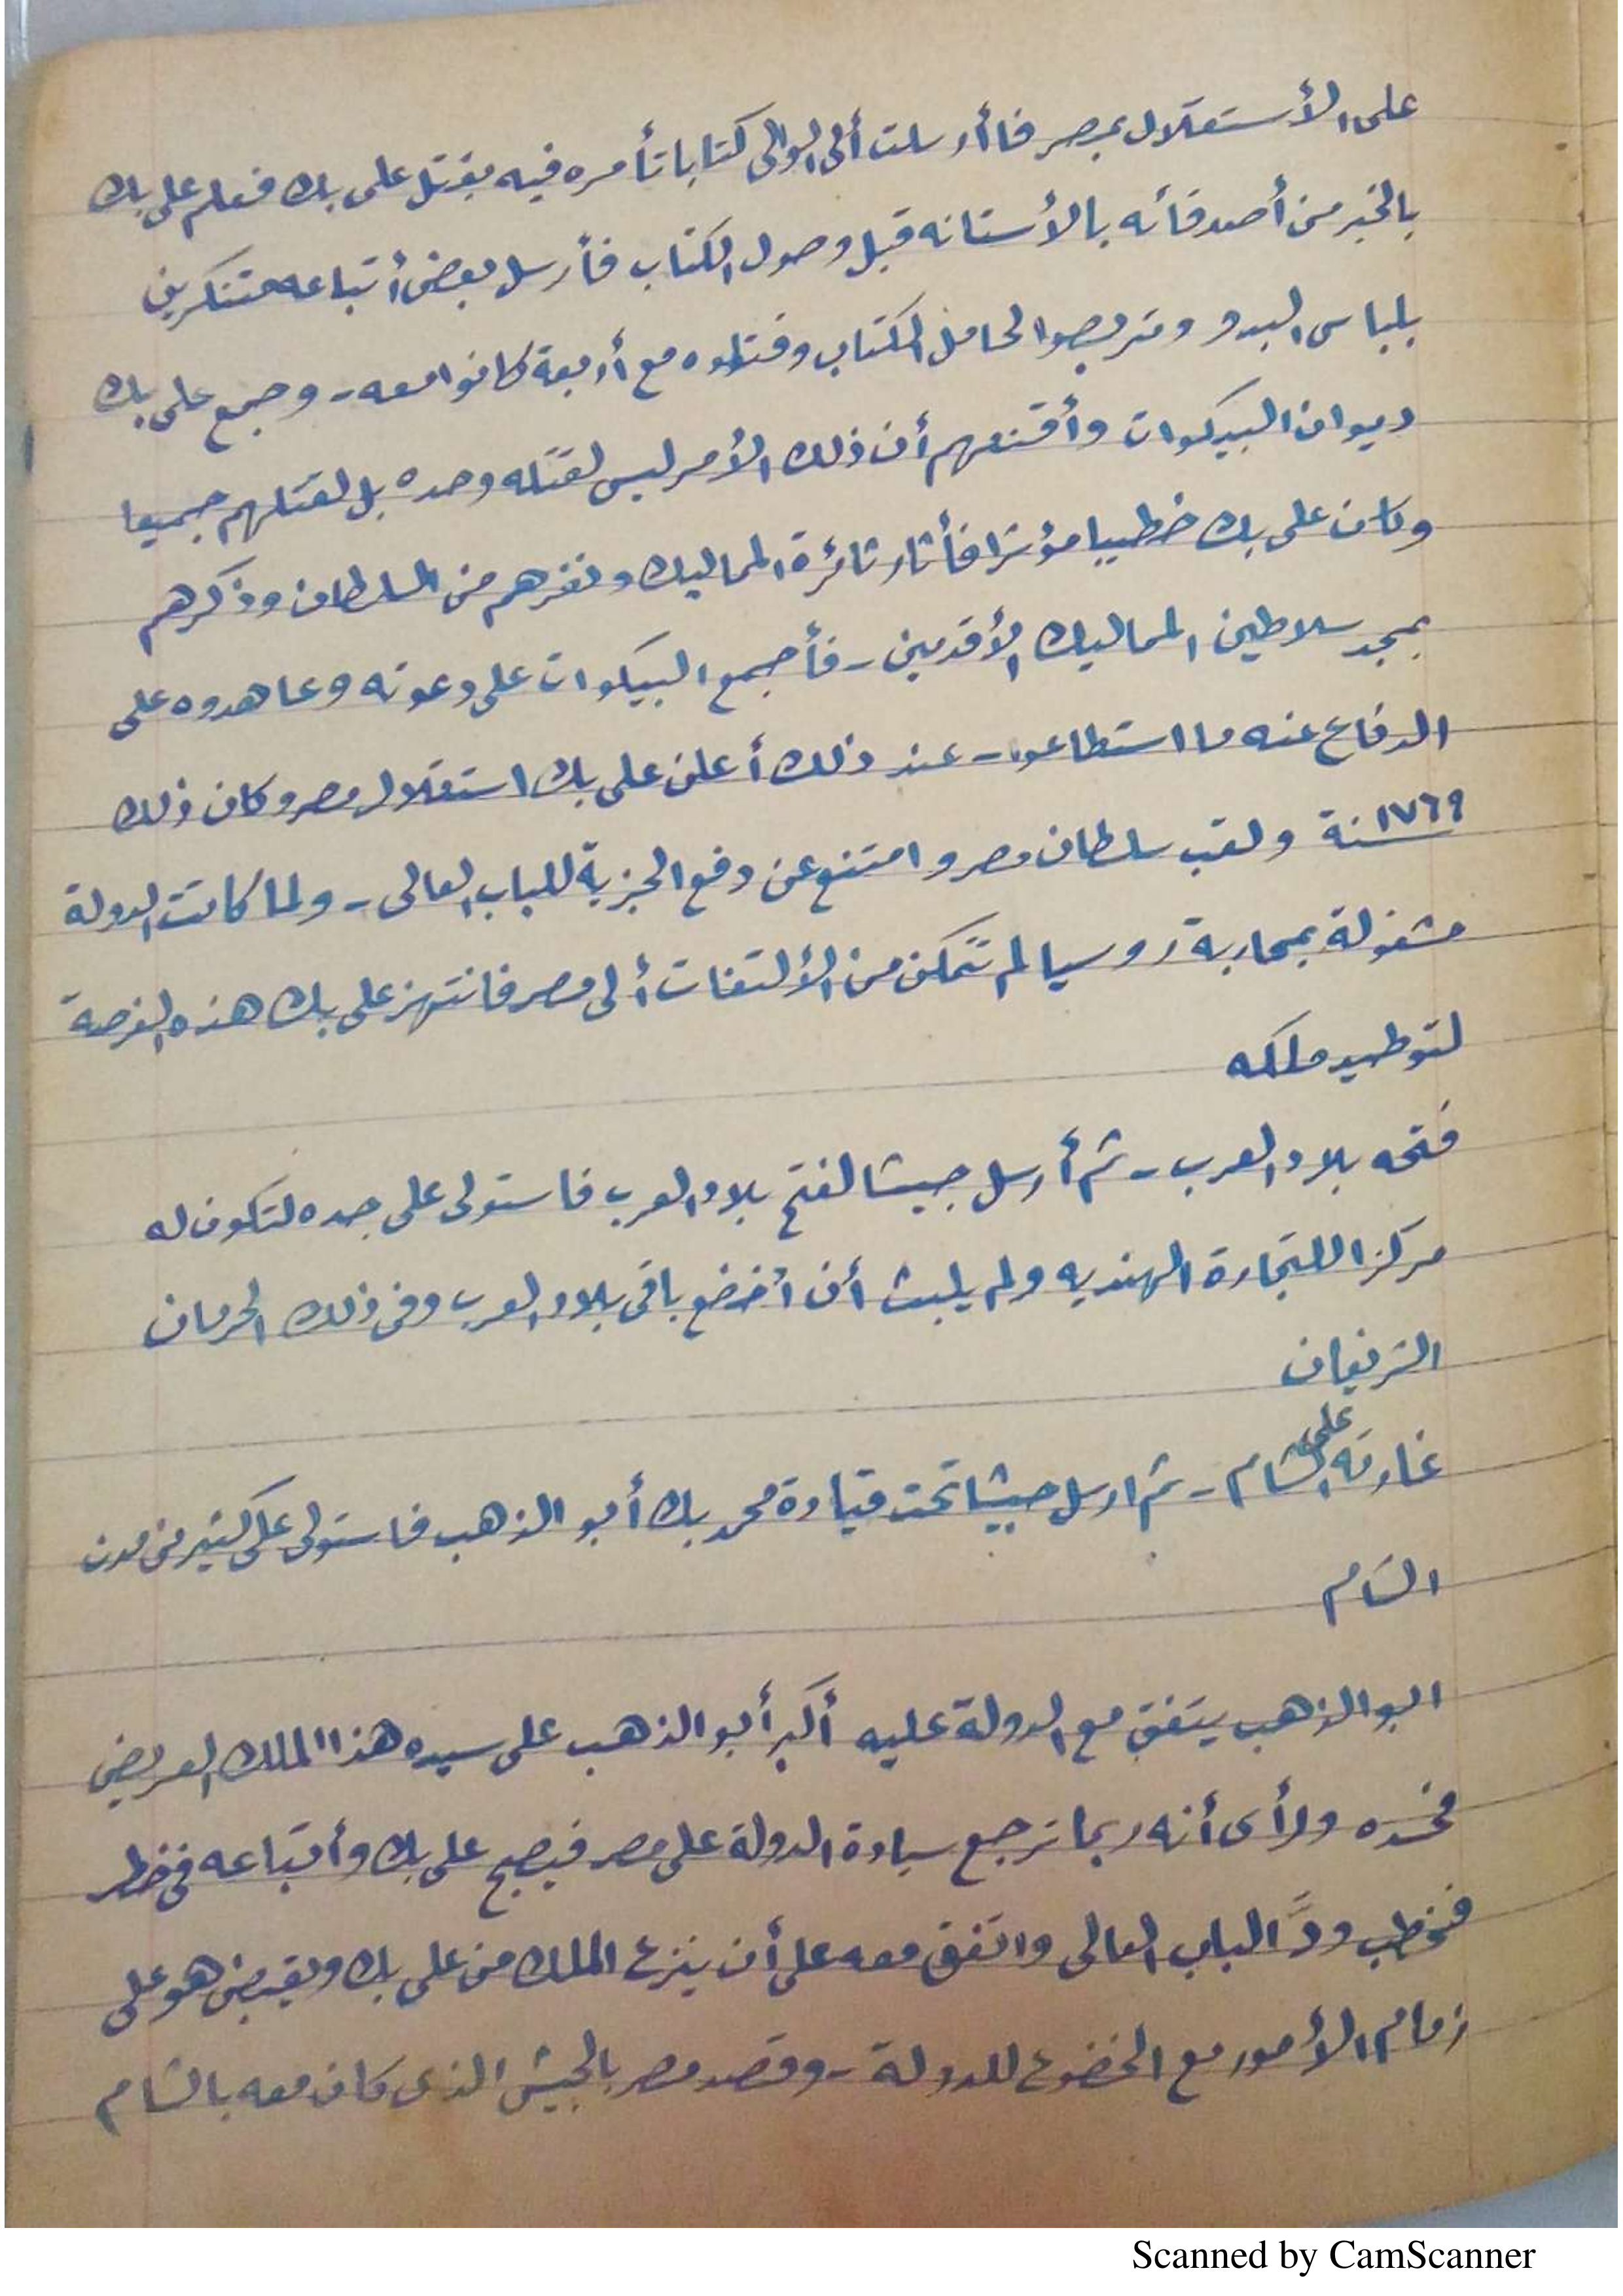 على الأستقلال بمصر فاأرسلت ألى الوالى كتابا تأمره فيه بقتل على بك فعلم على بك
بالخبر من أصدقائه بالأستانه قبل وصول الكتاب فأرسل بعض أتباعه متنكرين
بلباس البدو وتربصوا لحامل الكتاب وقتلوه مع أربعة كانوا معه - وجمع على بك
ديوان البيكوات وأقنعهم أن ذلك الأمر ليس لقتله وحده بل لقتلهم جميعا
وكان على بك خطيبا مؤثرا فأثار ثائرة المماليك ونفرهم من السلطان وذكرهم
بمجد سلاطين المماليك الأقدمين - فأجمع البيكوات على دعوته وعاهدوه على
الدفاع عنه ما استطاعوا - عند ذلك أعلن على بك استقلال مصر وكان ذلك
سنة ١٧٦٩ ولقب سلطان مصر وامتنع عن دفع الجزية للباب العالى - ولما كانت الدولة
مشغولة بمحاربة روسيا لم تتمكن من الألتفات ألى مصر فانتهز على بك هذه الفرصة
لتوطيد ملكه
فتحه بلاد العرب - ثم أرسل جيشا لفتح بلاد العرب فاستولى على جده لتكون له
مركزا للتجارة الهنديه ولم يلبث أن أخضع باقى بلاد العرب وفى ذلك الحرمان
الشريفان
غارته على الشام - ثم ارسل جيشا تحت قيادة محمد بك أبو الذهب فاستولى على كثير من مدن
الشام
ابو الذهب يتفق مع الدولة عليه أكبر أبو الذهب على سيده هذا الملك العريض
فحسده ورأى أنه ربما ترجع سيادة الدولة على مصر فيصبح على بك وأتباعه فى خطر
فخطب ودَّ الباب العالى واتفق معه على أن ينزع الملك من على بك ويقبض هو على
زمام الأمور مع الخضوع للدولة - وقصد مصر بالجيش الذى كان معه بالشام
Scanned by CamScanner